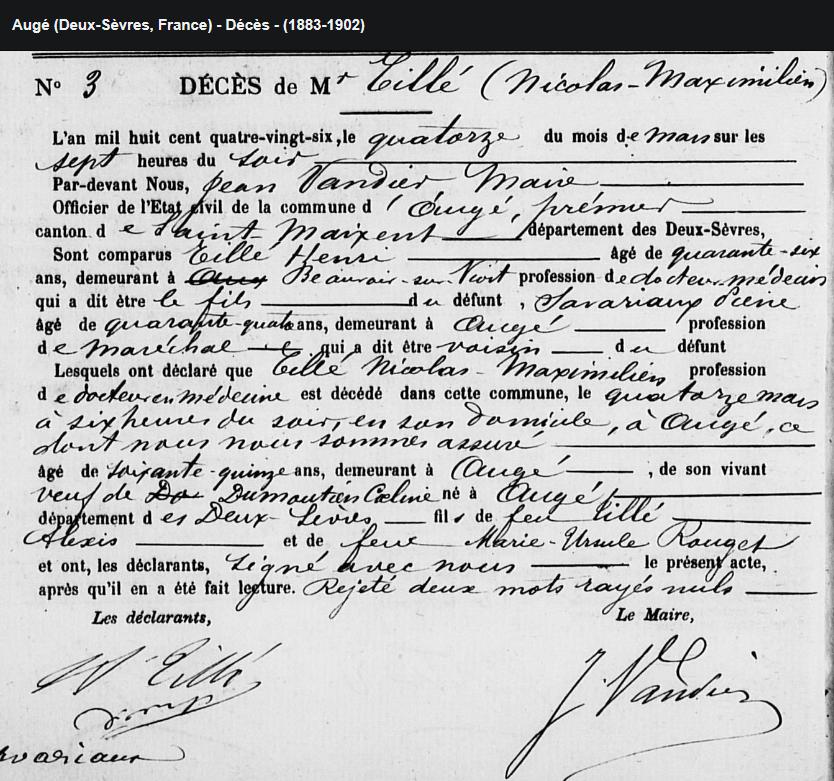 Augé (Deux-Sèvres, France) - Décès - (1883-1902)
N° 3 DÉCÈS de Mr Tillé (Nicolas-Maximilien)
L'an mil huit cent quatre-vingt-six, le quatorze du mois de mars sur les
sept heures du soir
Par-devant Nous, Jean Vandier Maire
Officier de l'Etat civil de la commune d'Augé, premier
canton de Saint Maixent département des Deux-Sèvres,
Sont comparus Tillé Henri âgé de quarante-six
ans, demeurant à Aug Beauvoir-sur-Niort profession de docteur médecin
qui a dit être le fils du défunt, Savariaux Pierre
âgé de quarante-quatre ans, demeurant à Augé profession
de maréchal qui a dit être voisin du défunt
Lesquels ont déclaré que Tillé Nicolas-Maximilien profession
de docteur en médecine est décédé dans cette commune, le quatorze mars
à six heures du soir, en son domicile, à Augé, ce
dont nous nous sommes assuré
âgé de soixante-quinze ans, demeurant à Augé, de son vivant
veuf de Du Dumoutier Céline né à Augé
département des Deux-Sèvres fils de feu Tillé
Alexis et de feue Marie-Ursule Rouget
et ont, les déclarants, signé avec nous le présent acte,
après qu'il en a été fait lecture. Rejeté deux mots rayés nuls
Les déclarants, Le Maire,
Tillé J. Vandier
dmp
variaux